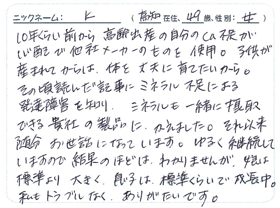 ニックネーム: K (高知 在住、49歳、性別: 女)
10年くらい前から高齢出産の自分のCa不足が
心配で他社メーカーのものを使用。子供が
産まれてからは、体を丈夫に育てたいから。
その頃読んだ記事にミネラル不足による
発達障害を知り、ミネラルも一緒に摂取
できる貴社の製品にかえました。それ以来
随分お世話になっています。ゆるく継続して
いますので結果のほどは、わかりませんが、娘は
標準より大きく、息子は標準くらいで成長中。
私もトラブルなく、ありがたいです。